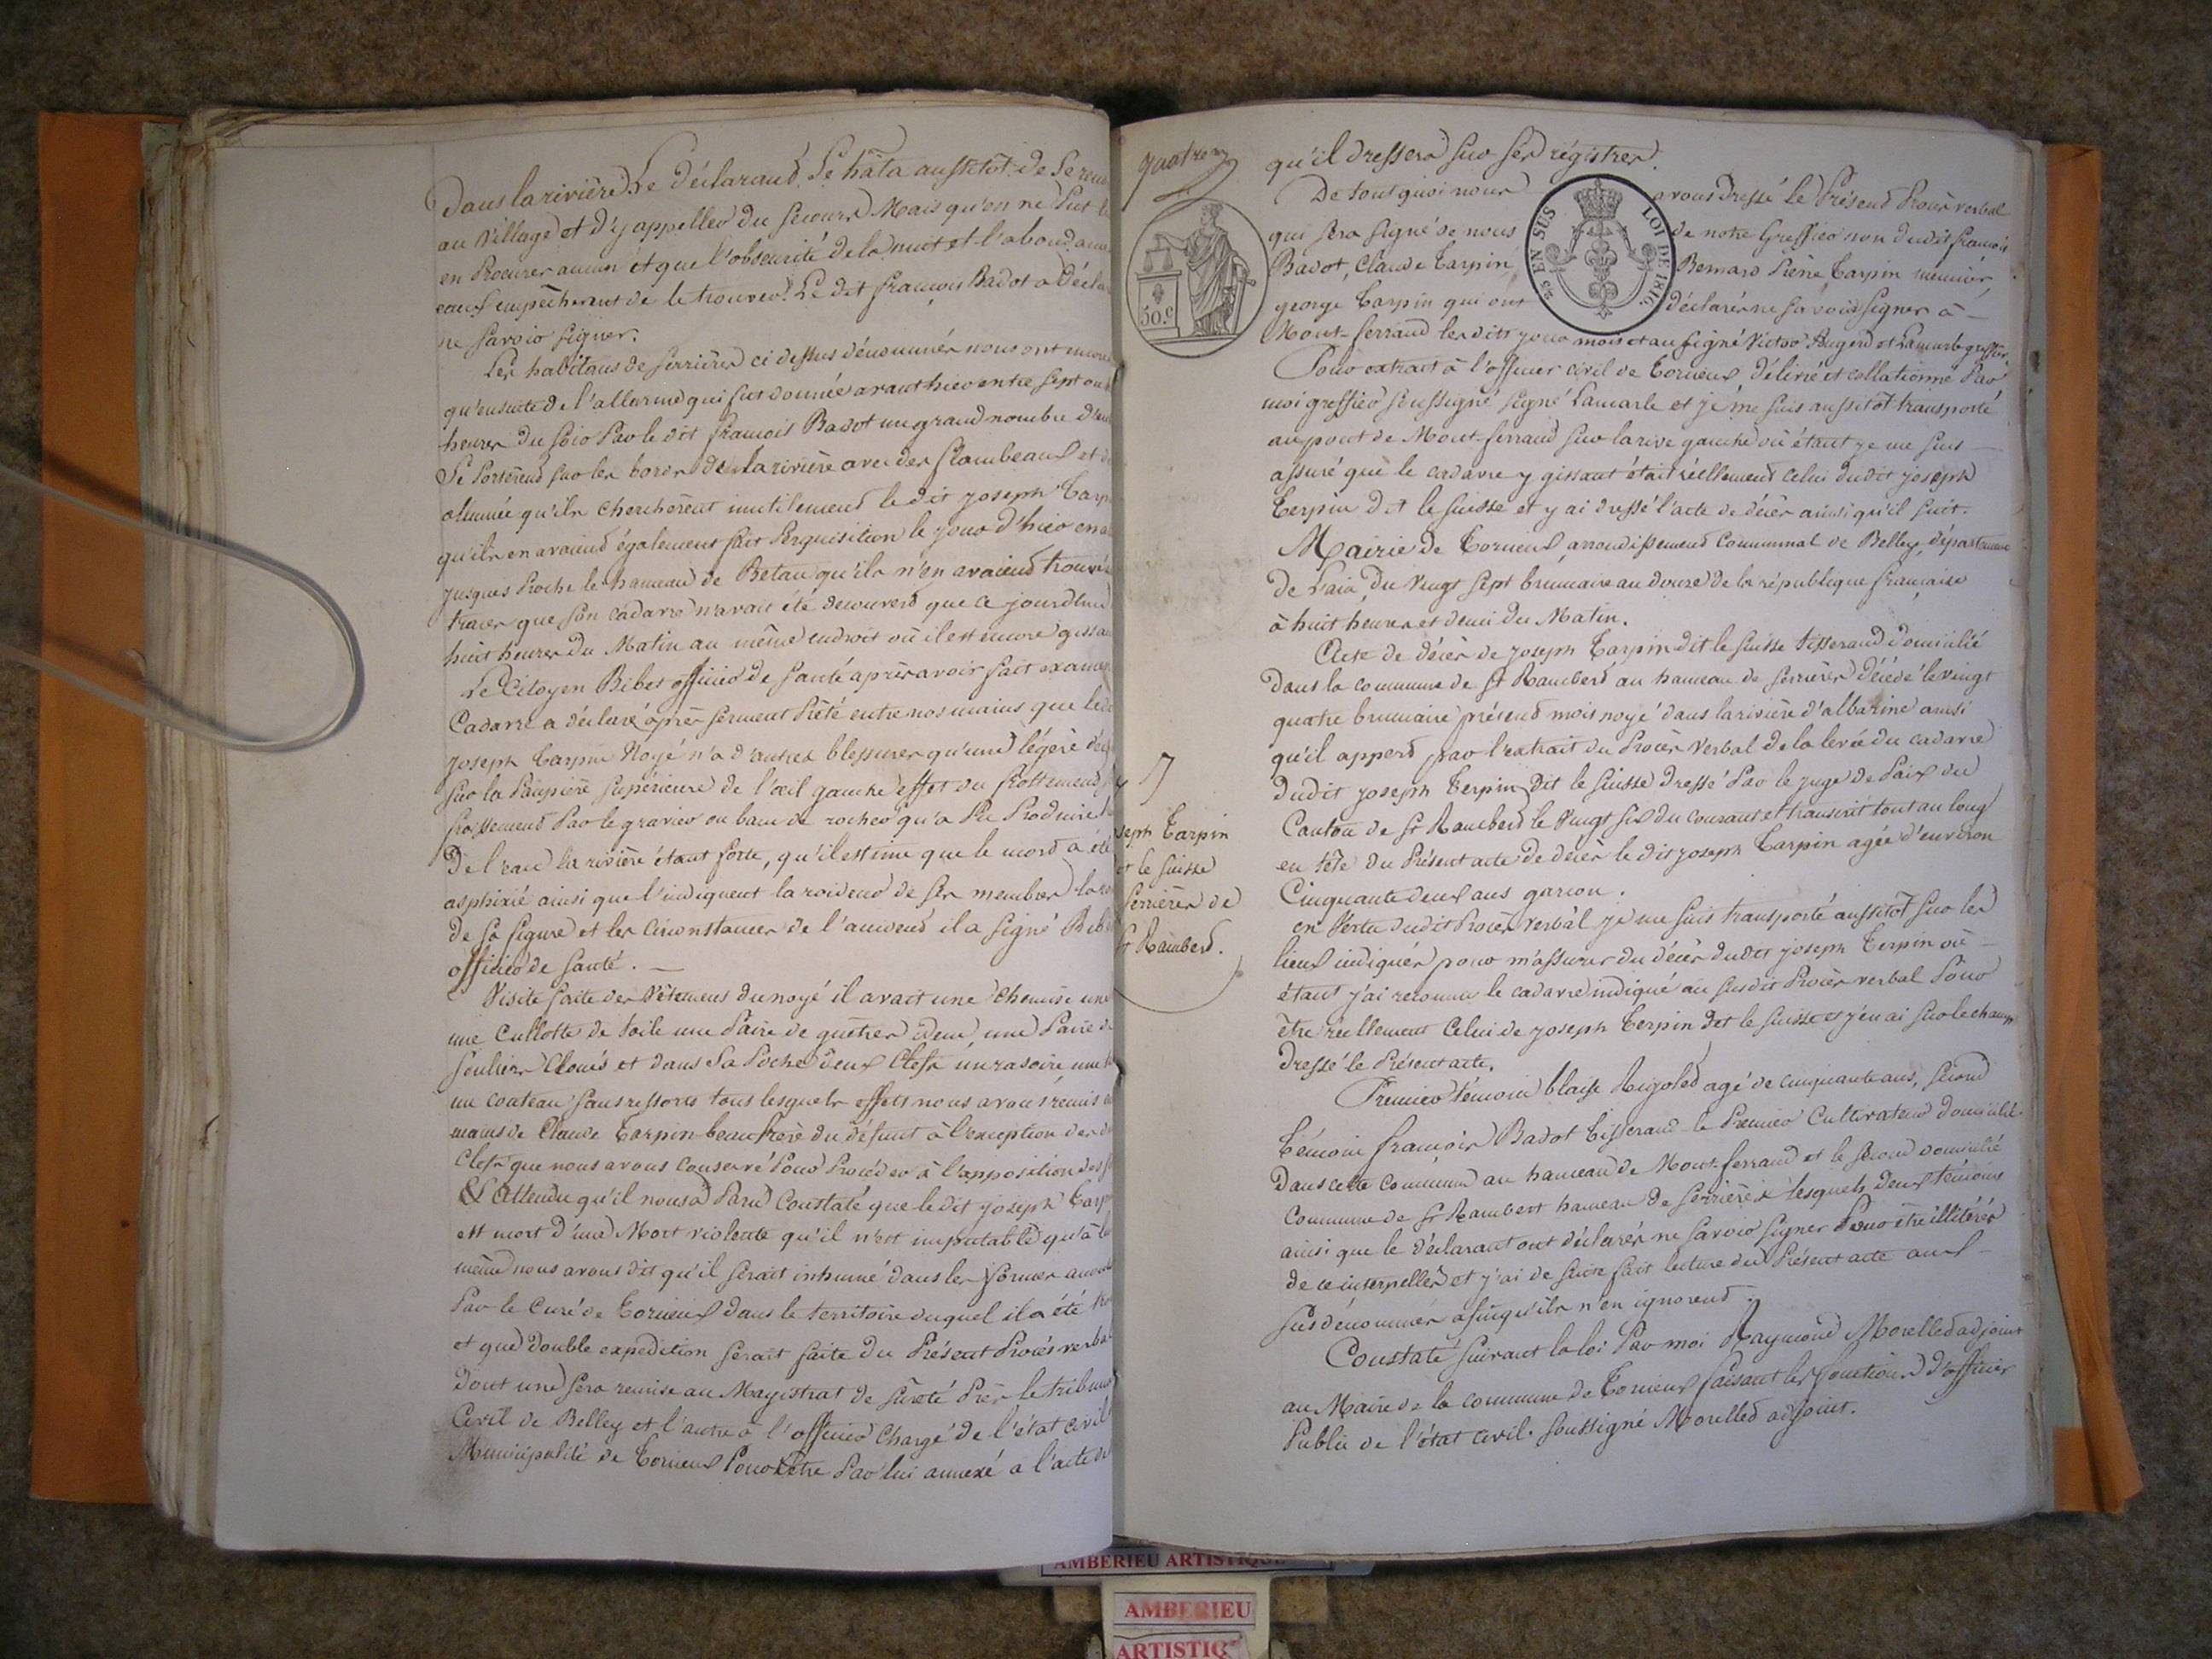 Dans la rivière Le déclarand Se hâta aussitôt de Se
au Village et d'y appeller du secours Mais qu'on ne Put
en Procurer aucun et que l'obscurité de la nuit et l'abond
eaux empêcherent de le trouver. Le dit françois Badot a Décla
ne savoir signer.
Les habitans de serrières ci dessus dénommés nous ont
qu'ensuite de l'allarme qui fut donnée avant hier entre sept ou
heures du soir Par le dit francois Badot un grand nombre
Se Porterend sur les bords de la rivière avec des flambeaux et
allumée qu'ils cherchèrent inutilement le dit joseph Tarp
qu'ils en avaiend également fait Perquisition le jour d'hier en
jusques Proche le hameau de Betau qu'ils n'en avaiend trouvé
traces que son cadavre n'avait été decouverd que ce jourd'hui
huit heures du Matin au même endroit où il est encore gissan
Le Citoyen Bibet officier de santé après avoir fait exam
Cadavre a déclaré après serment Prêté entre nos mains que led
joseph Tarpin Noyé n'a d'autres blessures qu'une légère
sur la Paupière supérieure de l'œil gauche effet du frottement
froissement Par le gravier ou banc de rocher qu'a Pu Produire
De l'eau la rivière étant forte, qu'il estime que le mord a été
asphixié ainsi que l'indiquent la roideur de ses membres la
de sa figure et les circonstances de l'accidend il a signé Bib
officier de santé.
Visite faite des Vêtemens du noyé il avait une chemise une
une Cullotte de toile une Paire de guêtres idem, une Paire de
souliers cloués et dans Sa Poche deux Clefs un rasoire, une
un couteau sans ressorts tous lesquels effets nous avons remis
mains de Claude Tarpin beau frere du défunt à l'exception des
Clefs que nous avons conservé Pour Procéder à l'apposition des
Et Attendu qu'il nous a Paru Constaté que le dit joseph Tarp
est mort d'une Mort violente qu'il n'est imputable qu'à
même nous avons dit qu'il serait inhumé dans les formes
Par le Curé de Torcieux dans le territoire duquel il a été
et que double expedition serait faite du Présent Procès verbal
dont une sera remise au Magistrat de sûreté Près le tribun
Civil de Belley et l'autre à l'officier Chargé de l'état civil
Municipalité de Torcieux Pour être Par lui annexé a l'acte de
qu'il dressera sur ses régistres.
50.c
25 EN SUS LOI DE 1816.
De tout quoi nous avons dressé Le Présend Procès verbal
qui sera signé de nous de notre Greffier non dudit françois
Badot, Claude Tarpin Bernard Pierre Tarpin meunier
george Tarpin qui ont déclarés ne savoir signer à
Mont-ferrand les dits jour mois et an signé Victor Augerd et Lamarle greffier.
Pour extrait à l'officier civil de Torcieux délivré et collationné Par
moi greffier soussigné signé Lamarle et je me suis aussitôt transporté
au pont de Mont-ferrand sur la rive gauche où étant je me suis
assuré que le cadavre y gissant était réellement celui dudit joseph
Terpin dit le suisse et y ai dressé l'acte de décès ainsi qu'il suit.
Mairie de Torcieux arrondissement Communal de Belley, département
de L'ain, du vingt sept brumaire an douze de la république française
à huit heures et demi du Matin.
seph Tarpin
t le suisse
serrières de
St Ramberd.
Acte de décès de joseph Tarpin dit le suisse tisserand domicilié
dans la commune de St Ramberd au hameau de serrières décédé le vingt
quatre brumaire présend mois noyé dans la rivière d'albarine ainsi
qu'il apperd par l'extrait du Procès verbal de la levée du cadavre
dudit joseph Terpin dit le suisse dressé Par le juge de Paix du
Canton de St Ramberd le Vingt six du courant et transcrit tout au long
en tête du Présent acte de décès le dit joseph Tarpin agée d'environ
Cinquante deux ans garçon.
en Vertu dudit Procès verbal je me suis transporté aussitôt sur les
lieux indiqués pour m'assurer du décès dudit joseph Terpin où
étant j'ai reconnu le cadavre indiqué au susdit Procès verbal Pour
être réellement Celui de joseph Terpin dit le suisse et j'en ai sur le champ
dressé le Présent acte.
Premier témoin blaise Rigoled agé de cinquante ans, second
témoin françois Badot tisserand le Premier Cultivateur domicilié
dans cette commune au hameau de Mont-ferrand et le second domicilié
Commune de St Rambert hameau de serrières lesquels deux témoins
ainsi que le déclarant ont déclarés ne savoir signer Pour être illitérés
de ce interpellés et j'ai de suite fait lecture du Présent acte aux
susdénommés afin qu'ils n'en ignorend.
Constaté suivant la loi Par moi Raymond Morelled adjoint
au Maire de la commune de Torcieux faisant les fonctions d'officier
Public de l'état civil. soussigné Morelled adjoint.
AMBERIEU ARTISTIQUE
AMBERIEU
ARTISTIQ